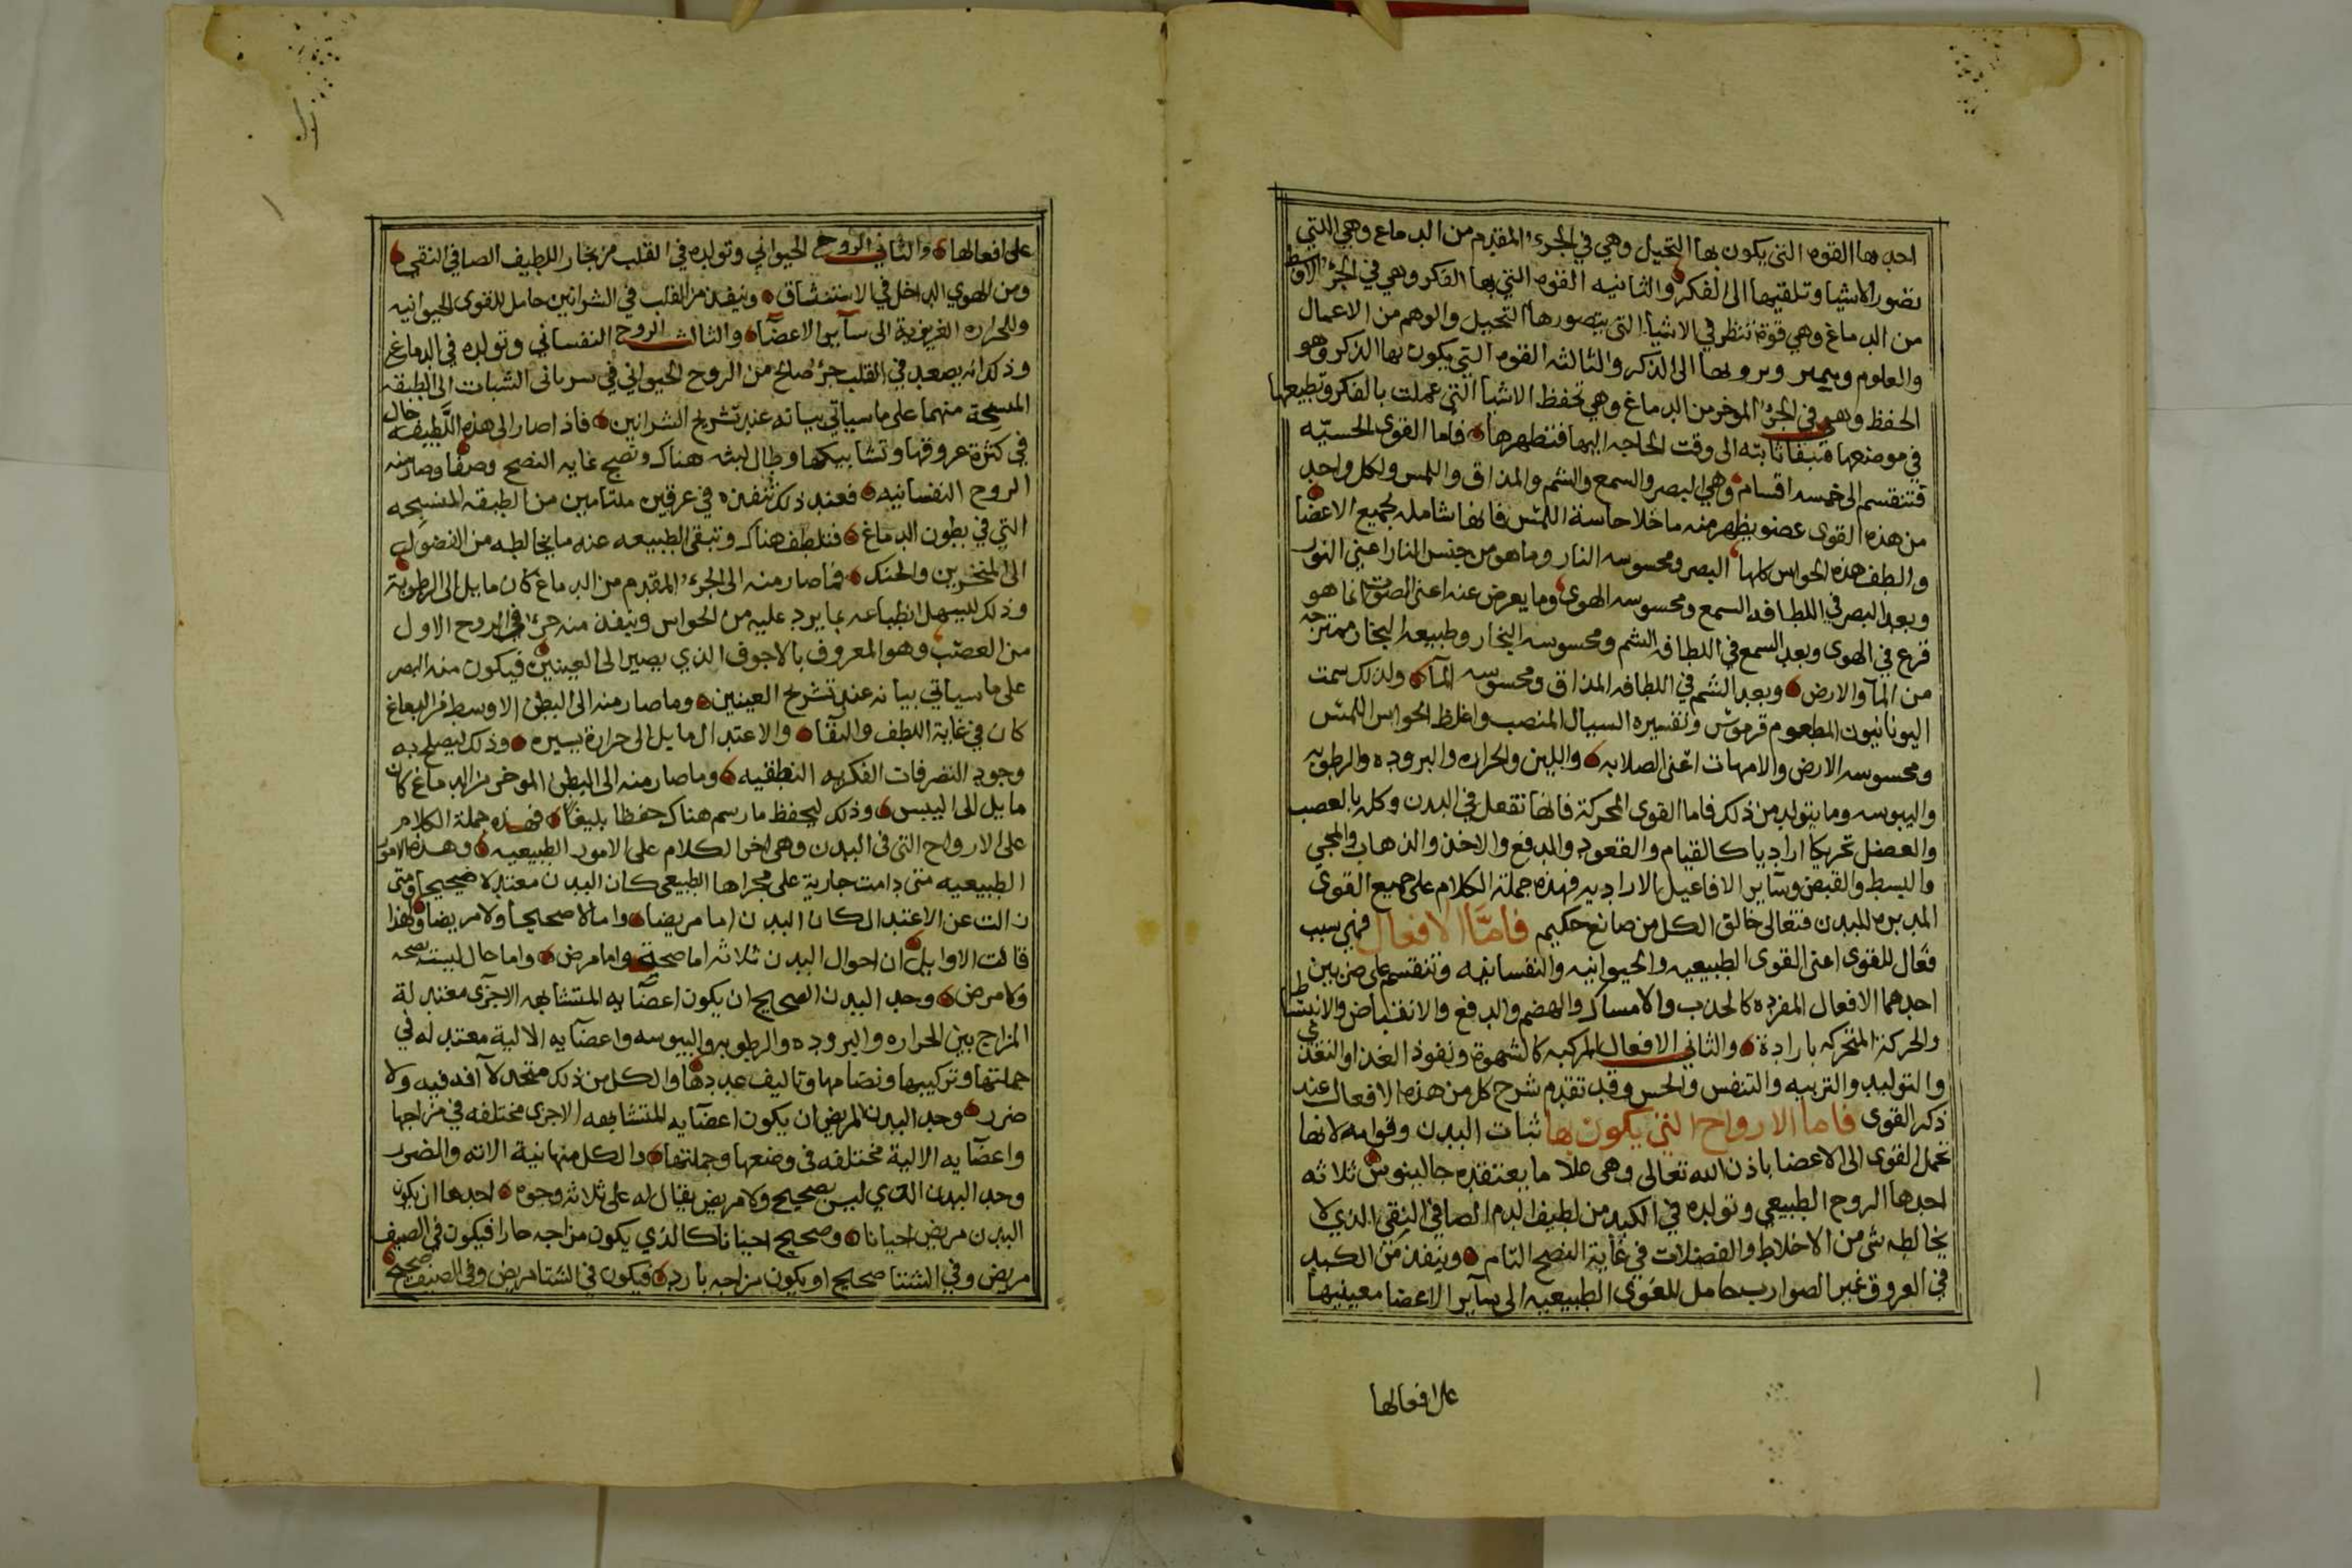 احدها القوه التى يكون بها التخيل وهي في الجزء المقدم من الدماغ وهي اللتي
تصور الاشيا وتلقيها الى الفكر والثانيه القوه التي بها الفكر وهي في الجزء الاوسط
من الدماغ وهي قوة تنظر في الاشيا التى يتصورها التخيل والوهم من الاعمال
والعلوم ويميز ويرويها الى الذكر والثالثه القوه التي يكون بها الذكر وهو
الحفظ وهي في الجزء الموخر من الدماغ وهي تحفظ الاشيا التى عملت بالفكر وتطبعها
في موضعها فتبقا ثابته الى وقت الحاجه اليها فتظهرها فاما القوى الحسيّه
فتنقسم الى خمسه اقسام وهي البصر والسمع والشم والمذاق واللمس ولكل واحد
من هذه القوى عضو يظهر منه ما خلا حاسة اللمس فانها شامله لجميع الاعضا
والطف هذه الحواس كلها البصر ومحسوسه النار وما هو من جنس النار اعني النور
وبعد البصر في اللطافه السمع ومحسوسه الهوى وما يعرض عنه اعنى الصوت انما هو
قرع في الهوى وبعد السمع في اللطافه الشم ومحسوسه البخار وطبيعه البخار ممتزجه
من المآ والارض وبعد الشم في اللطافه المذاق ومحسوسه المآ ولذلك سمت
اليونانيون المطعوم قرموس وتفسيره السيال المنصب واغلظ الحواس اللمس
ومحسوسه الارض والامهات اعنى الصلابه واللين والحراره والبروده والرطوبه
واليبوسه وما يتولد من ذلك فاما القوى المحركة فانها تفعل في البدن وكله بالعصب
والعضل تحريكا اراديا كالقيام والقعود والدفع والاخذ والذهاب والمجي
والبسط والقبض وسآير الافاعيل الاراديه فهذه جملة الكلام على جميع القوى
المدبره للبدن فتعالى خالق الكل من صانع حكيم فامّا الافعال فهي سبب
فعال للقوى اعنى القوى الطبيعيه والحيوانيه والنفسانيه وتنقسم على ضربين
احدهما الافعال المفرده كالجذب والامساك والهضم والدفع والانقباض والانبساط
والحركة المتحركه بارادة والثاني الافعال المركبه كالشهوة ونفوذ الغذا والتغذي
والتوليد والتربيه والتنفس والحس وقد تقدم شرح كل من هذه الافعال عند
ذكر القوى فاما الارواح التي يكون بها ثبات البدن وقوامه لانها
تحمل القوى الى الاعضا باذن الله تعالى وهى علا ما يعتقده جالينوس ثلاثه
احدها الروح الطبيعي وتولده في الكبد من لطيف الدم الصافي النقى الذي لا
يخالطه شى من الاخلاط والفضلات في غاية النضج التام وينفذ من الكبد
في العروق غير الضوارب حامل للقوى الطبيعيه الى سآير الاعضا معينها
على افعالها
على افعالها والثاني الروح الحيواني وتولده في القلب من بخار اللطيف الصافي النقي
ومن الهوي الداخل في الاستنشاق وينفذ من القلب في الشرانين حامل للقوى الحيوانيه
وللحراره الغريزية الى سآير الاعضآ والثالث الروح النفساني وتولده في الدماغ
وذلك انه يصعد في القلب جزؤ صالح من الروح الحيواني في سرياني الشبات الى الطبقه
المنسجة منهما على ما سياتي بيانه عند تشريح الشرانين فاذا صار الى هذه اللطيفه جال
في كثرة عروقها وتشابيكها وطال لبثه هناك ونضج غايه النضج وصفا وصار منه
الروح النفسانيه فعند ذلك تنفذه في عرقين ملتامين من الطبقه المنسجه
التي في بطون الدماغ فتلطف هناك وتبقى الطبيعه عنه ما يخالطه من الفضول
الى المنخرين والحنك فما صار منه الى الجزء المقدم من الدماغ كان مايل الى الرطوبة
وذلك ليسهل انطباعه بما يرد عليه من الحواس وينفذ منه جزء في الروح الاول
من العصب وهو المعروف بالاجوف الذي يصير الى العينين فيكون منه البصر
على ما سياتي بيانه عند تشريح العينين وما صار منه الى البطن الاوسط من الدماغ
كان في غاية اللطف والنقا والاعتدال مايل الى حرارة يسيره وذلك ليصلح به
وجود التصرفات الفكريه النطقيه وما صار منه الى البطن الموخر من الدماغ كان
مايل الى اليبس وذلك ليحفظ ما رسم هناك حفظا بليغا فهذه جملة الكلام
على الارواح التى في البدن وهى اخر الكلام على الامور الطبيعيه وهذه الامور
الطبيعيه متى دامت جارية على مجراها الطبيعى كان البدن معتدلا صحيحا ومتى
زالت عن الاعتدال كان البدن اما مريضا واما لا صحيحا ولا مريضا ولهذا
قالت الاوايل ان احوال البدن ثلاثه اما صحة واما مرض واما حال ليست بصحه
ولا مرض وحد البدن الصحيح ان يكون اعضآيه المتشابهه الاجزى معتدلة
المزاج بين الحراره والبروده والرطوبه واليبوسه واعضايه الالية معتدله في
جملتها وتركيبها ونضامها وتاليف عددها والكل من ذلك متحد لا آفه فيه ولا
ضرر وحد البدن المريض ان يكون اعضآيه المتشابهه الاجزى مختلفه في مزاجها
واعضآيه الالية مختلفه في وضعها وجملتها والكل منها نية الافه والضرر
وحد البدن الذي ليس بصحيح ولا مريض يقال له على ثلاثه وجوه احدها ان يكون
البدن مريض احيانا وصحيح احيانا كالذي يكون مزاجه حارا فيكون في الصيف
مريض وفي الشتا صحيح او يكون مزاجه بارد فيكون في الشتا مريض وفي الصيف صحيح